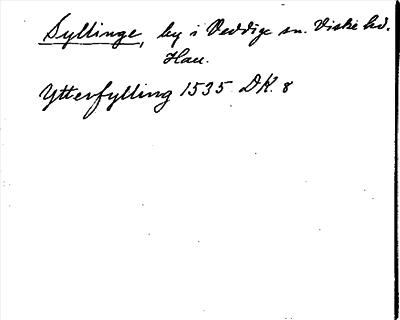 Syllinge, by i Veddige sn. Viske hd.
Hall.
Ytterfylling 1535 DK. 8